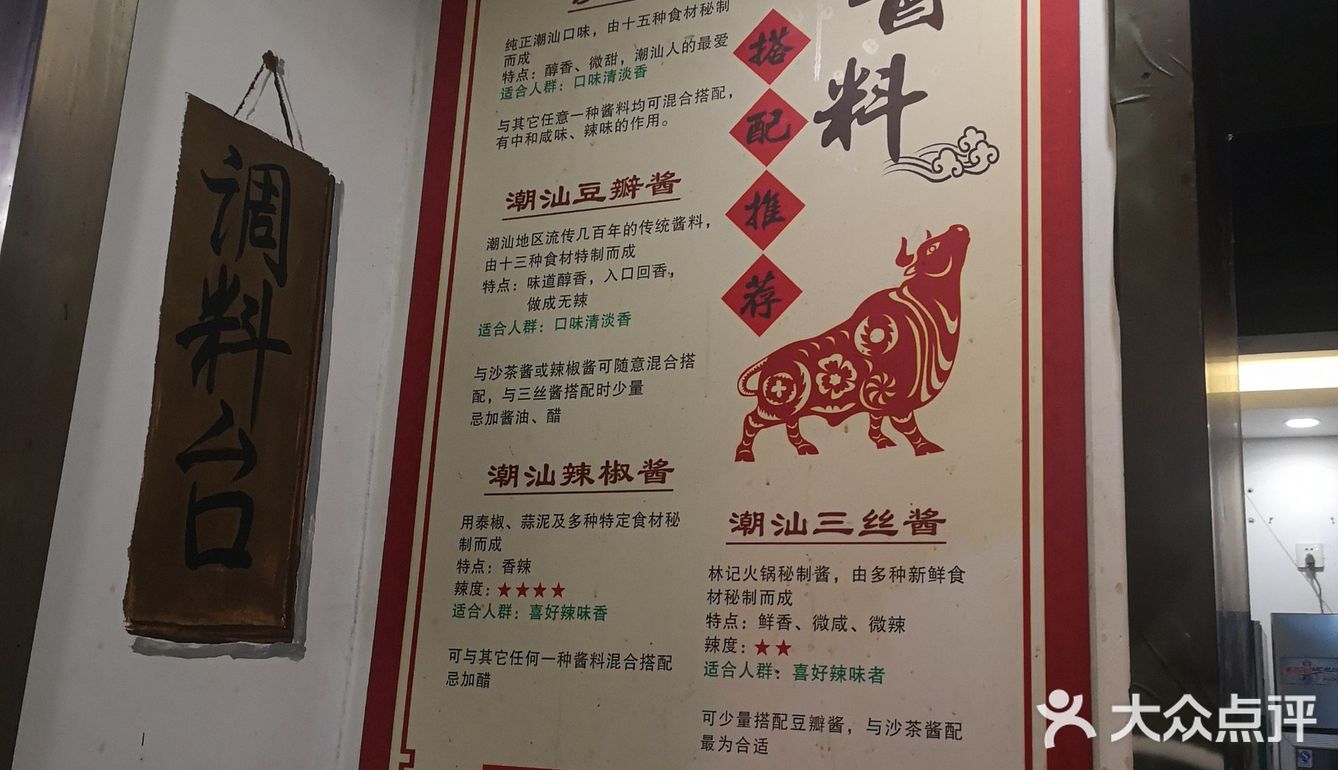 调料台
酱料
搭配推荐
纯正潮汕口味，由十五种食材秘制
而成
特点：醇香、微甜，潮汕人的最爱
适合人群：口味清淡香
与其它任意一种酱料均可混合搭配，
有中和咸味、辣味的作用。
潮汕豆瓣酱
潮汕地区流传几百年的传统酱料，
由十三种食材特制而成
特点：味道醇香，入口回香，
做成无辣
适合人群：口味清淡香
与沙茶酱或辣椒酱可随意混合搭
配，与三丝酱搭配时少量
忌加酱油、醋
潮汕辣椒酱
用泰椒、蒜泥及多种特定食材秘
制而成
特点：香辣
辣度：★★★★
适合人群：喜好辣味香
可与其它任何一种酱料混合搭配
忌加醋
潮汕三丝酱
林记火锅秘制酱，由多种新鲜食
材秘制而成
特点：鲜香、微咸、微辣
辣度：★★
适合人群：喜好辣味者
可少量搭配豆瓣酱，与沙茶酱配
最为合适
大众点评